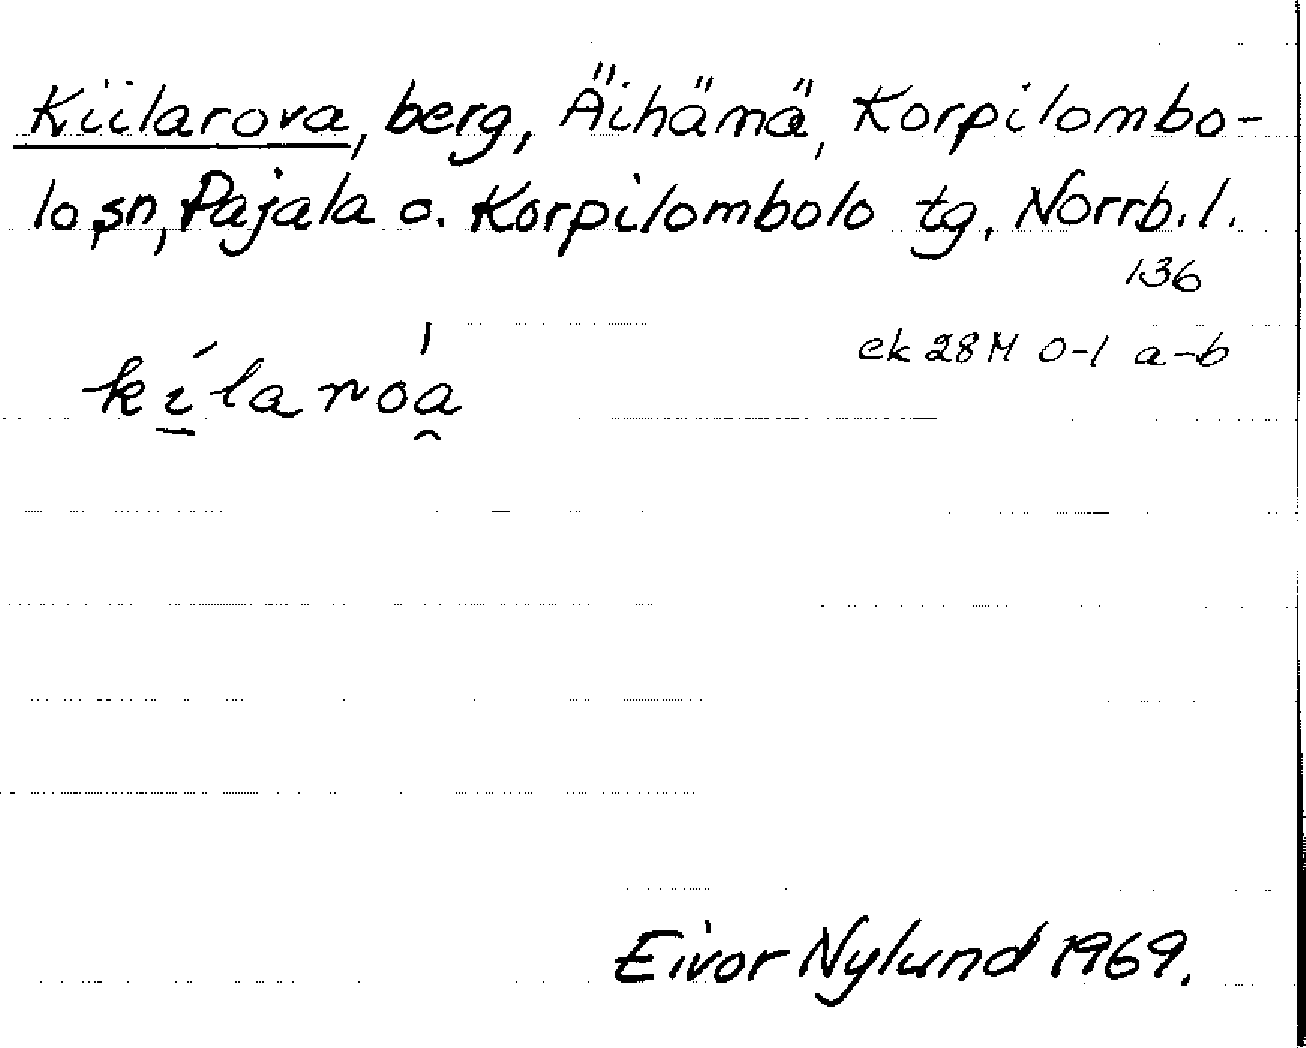 Kiilarova, berg, Äihämä, Korpilombo-
lo sn, Pajala o. Korpilombolo tg, Norrb. l.
136
ek 28 M 0-1 a-b
kí̱laròa̯
Eivor Nylund 1969.